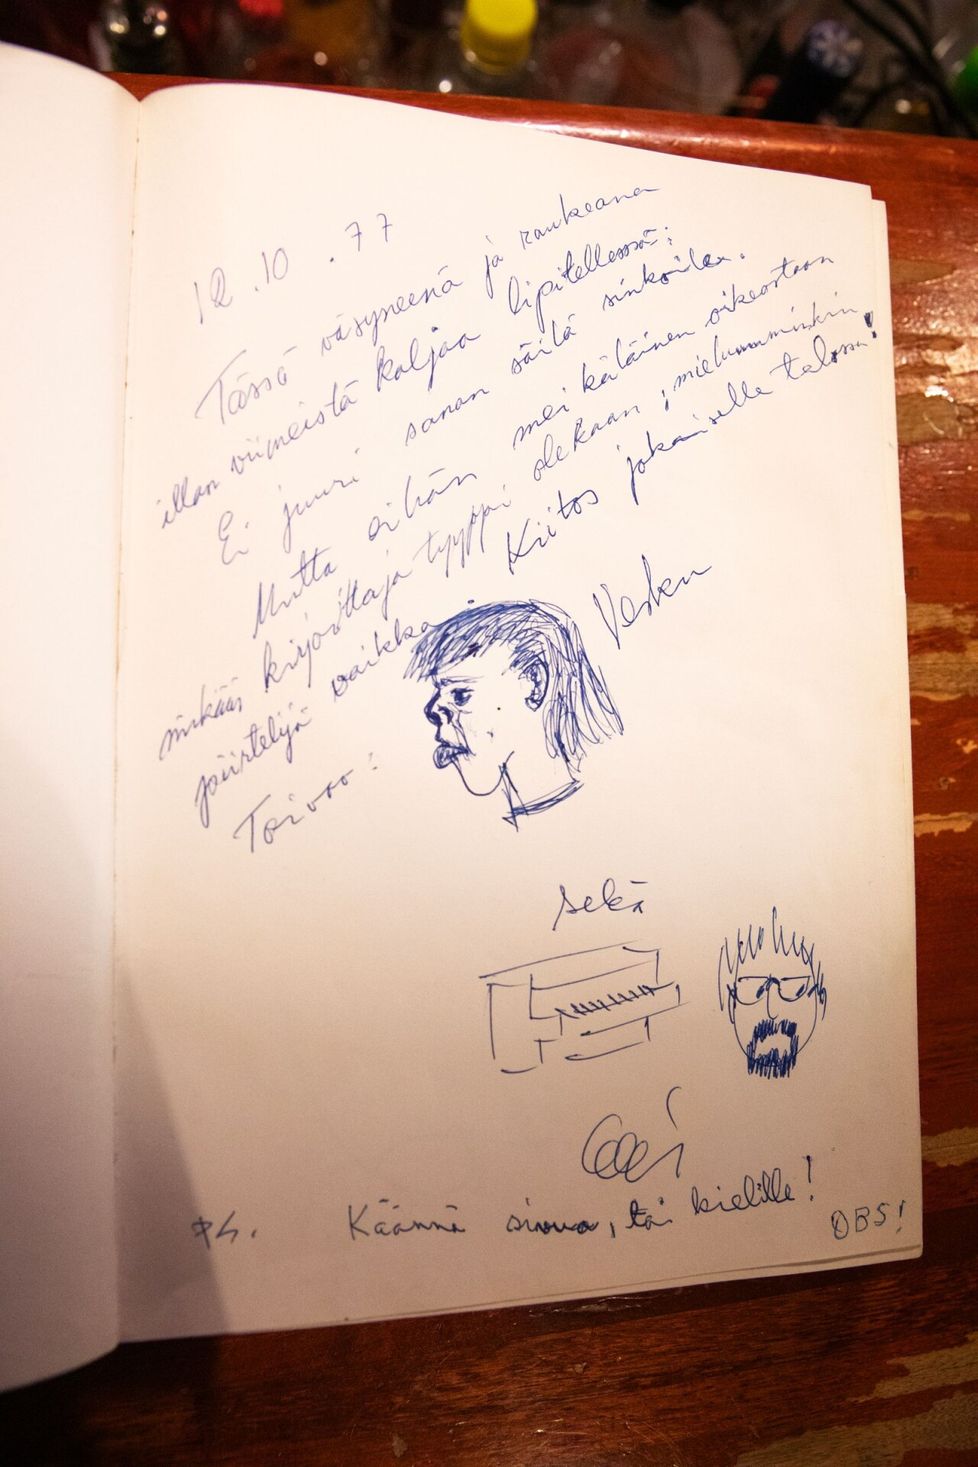 12.10.77
Tässä väsyneenä ja raukeana
illan viimeistä kaljaa lipitellessä:
Ei juuri sanan säilä sinkoile.
Mutta eihän meikäläinen oikeastaan
mikään kirjoittaja tyyppi olekaan, mieluumminkin
piirtelijä vaikka. Kiitos jokaiselle talossa!
Toivoo: Vesku
sekä
PS. Käännä sivua, tai kielille! OBS!